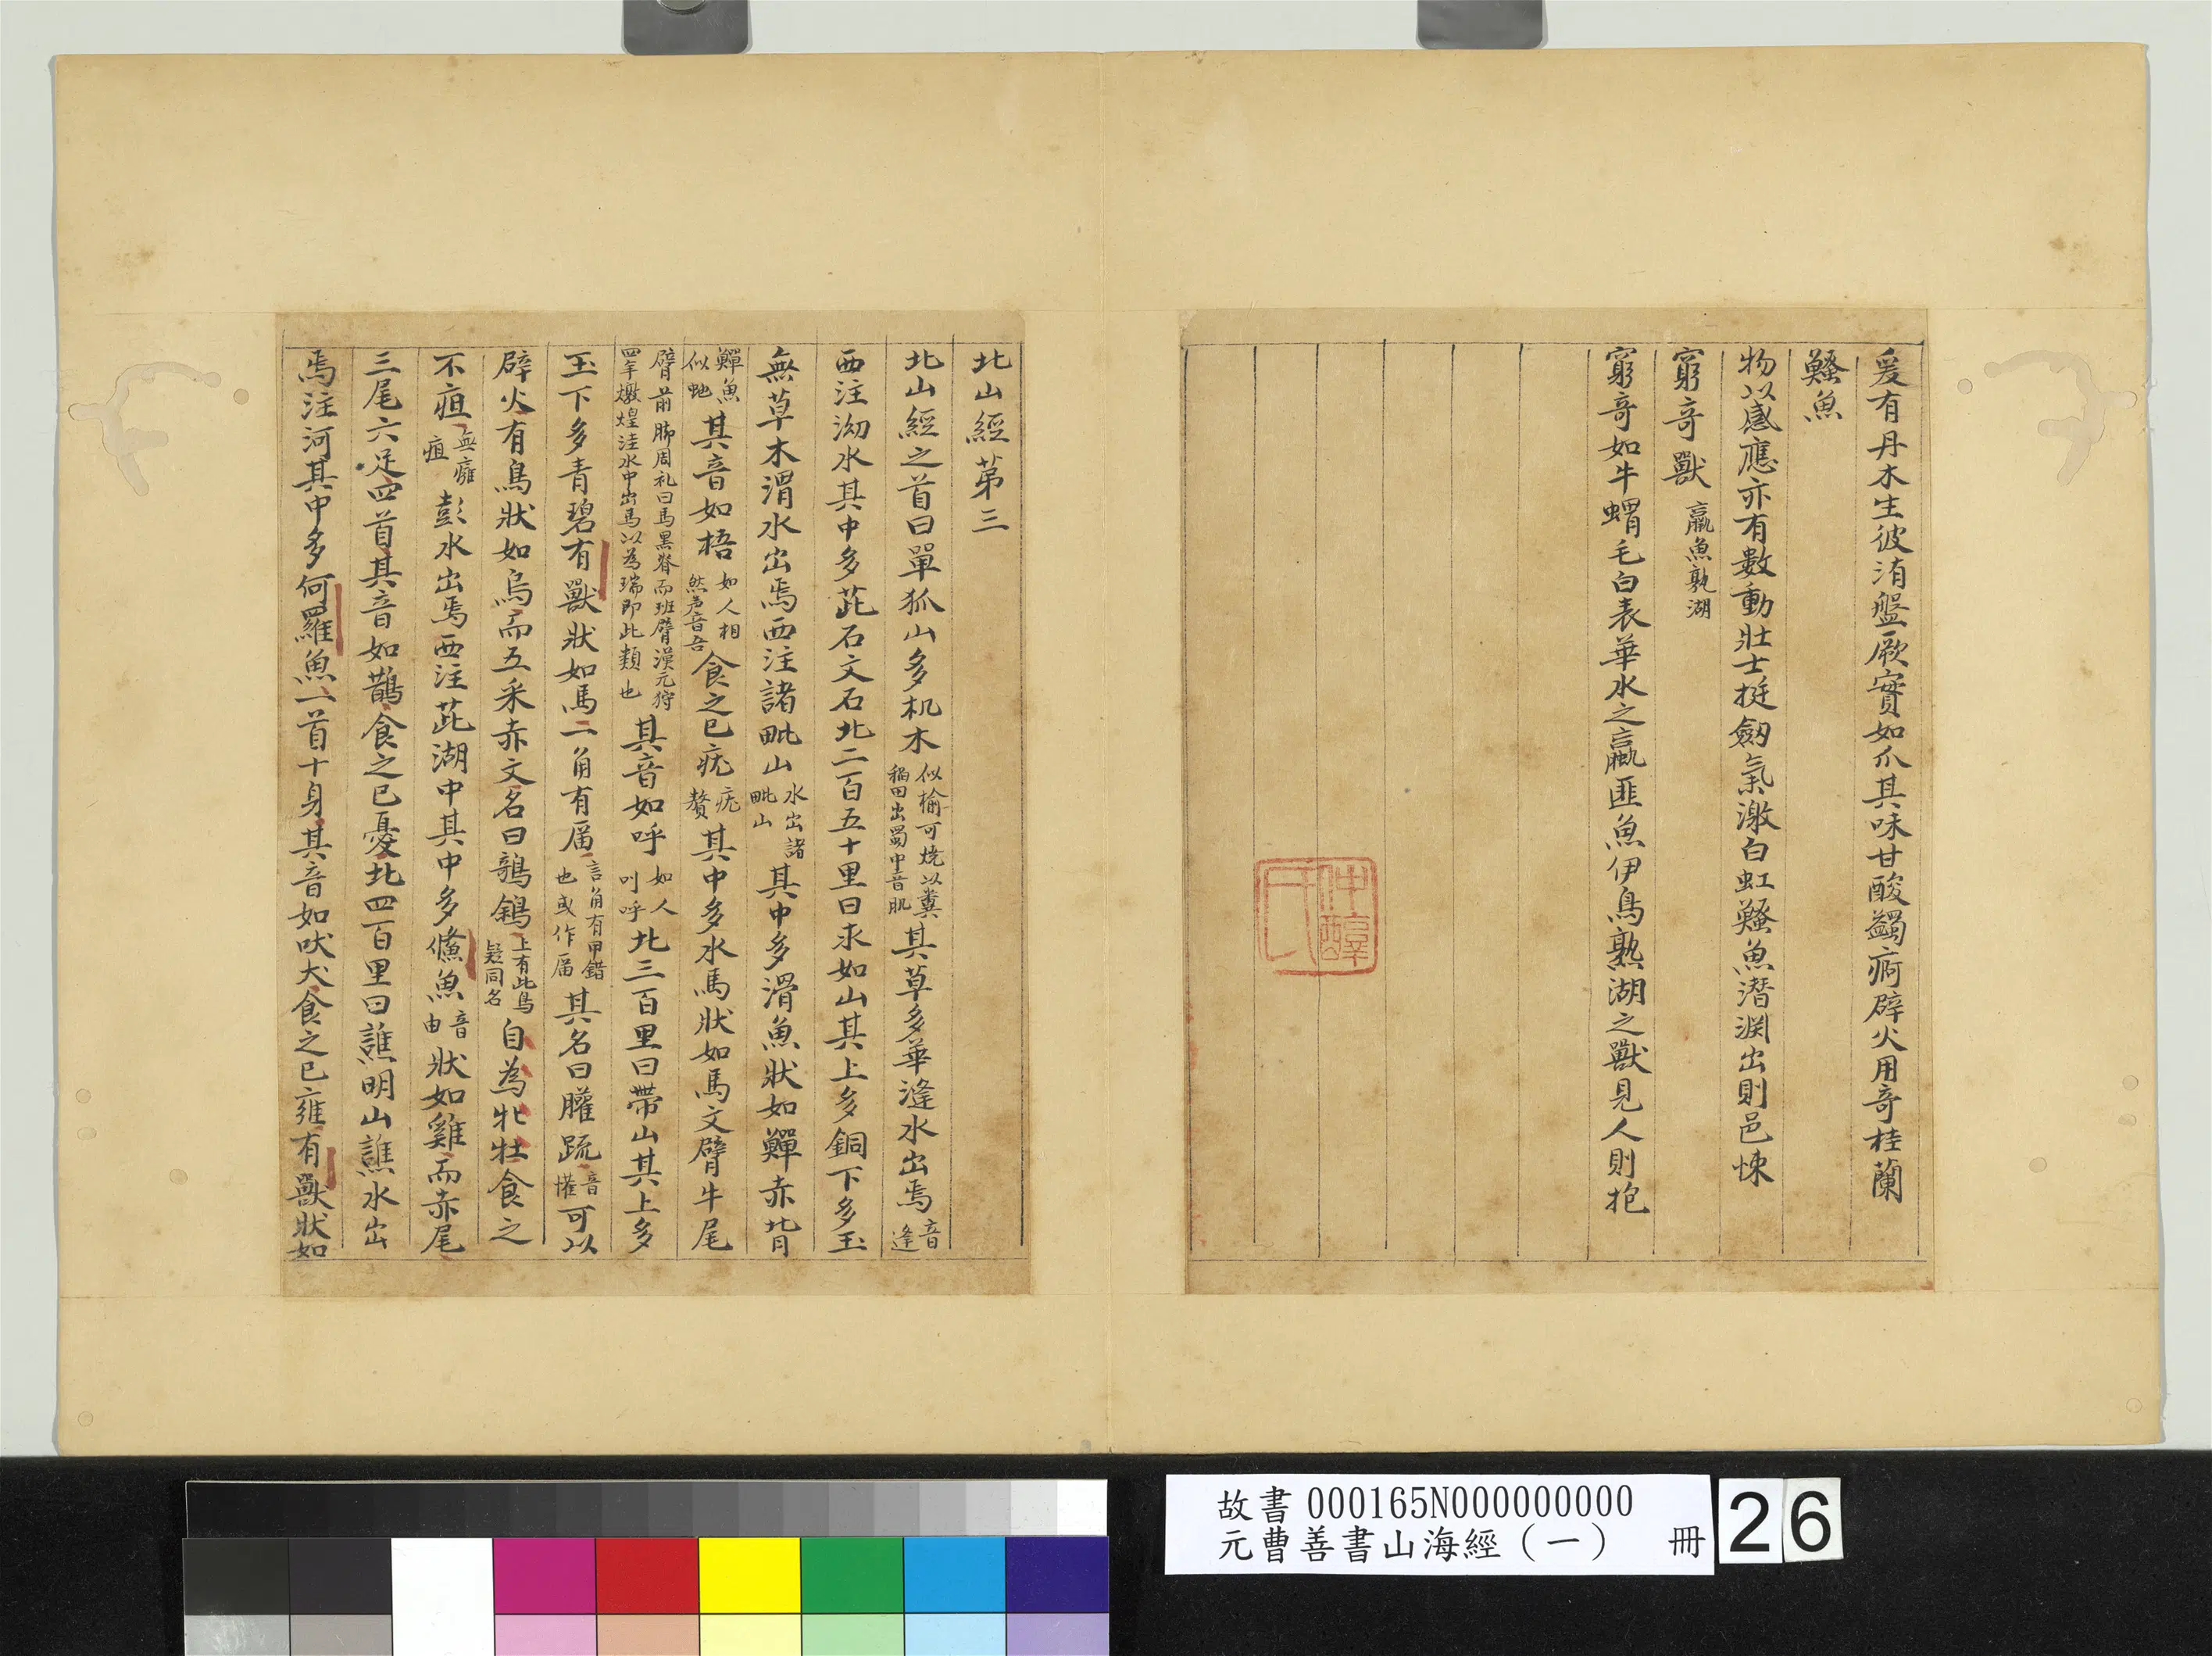 爰有丹木生彼洧盤厥實如爪其味甘酸蠲痾辟火用奇桂蘭
鰠魚
物以感應亦有數動壯士挺劒氣激白虹鰠魚潛淵出則邑悚
窮奇獸 蠃魚孰湖
窮奇如牛蝟毛自表華水之蠃匪魚伊鳥熟湖之獸見人則抱
仲醇
北山經第三
北山經之首曰單狐山多机木似榆可燒以糞稻田出蜀中音肌其草多華漨水出焉音逢
西注泑水其中多茈石文石北二百五十里曰求如山其上多銅下多玉
無草木滑水出焉西注諸毗山水出諸毗山其中多滑魚狀如鱓赤背
鱓魚似虵其音如梧如人相然声音吾食之已疣疣贅其中多水馬狀如馬文臂牛尾
臂前脚周礼曰馬黑脊而班臂漢元狩四年燉煌洼水中出馬以為瑞即此類也其音如呼如人叫呼北三百里曰帶山其上多
玉下多青碧有獸狀如馬二角有厝言角有甲錯也或作厝其名曰䑏疏音懽可以
辟火有鳥狀如烏而五采赤文名曰鵸鵌上有此鳥疑同名自為牝牡食之
不疽無癰疽彭水出焉西注茈湖中其中多儵魚音由狀如雞而赤尾
三尾六足四首其音如鵲食之已憂北四百里曰譙明山譙水出
焉注河其中多何羅魚一首十身其音如吠犬食之已雍有獸狀如
故書 000165N000000000
元曹善書山海經（一） 冊
26